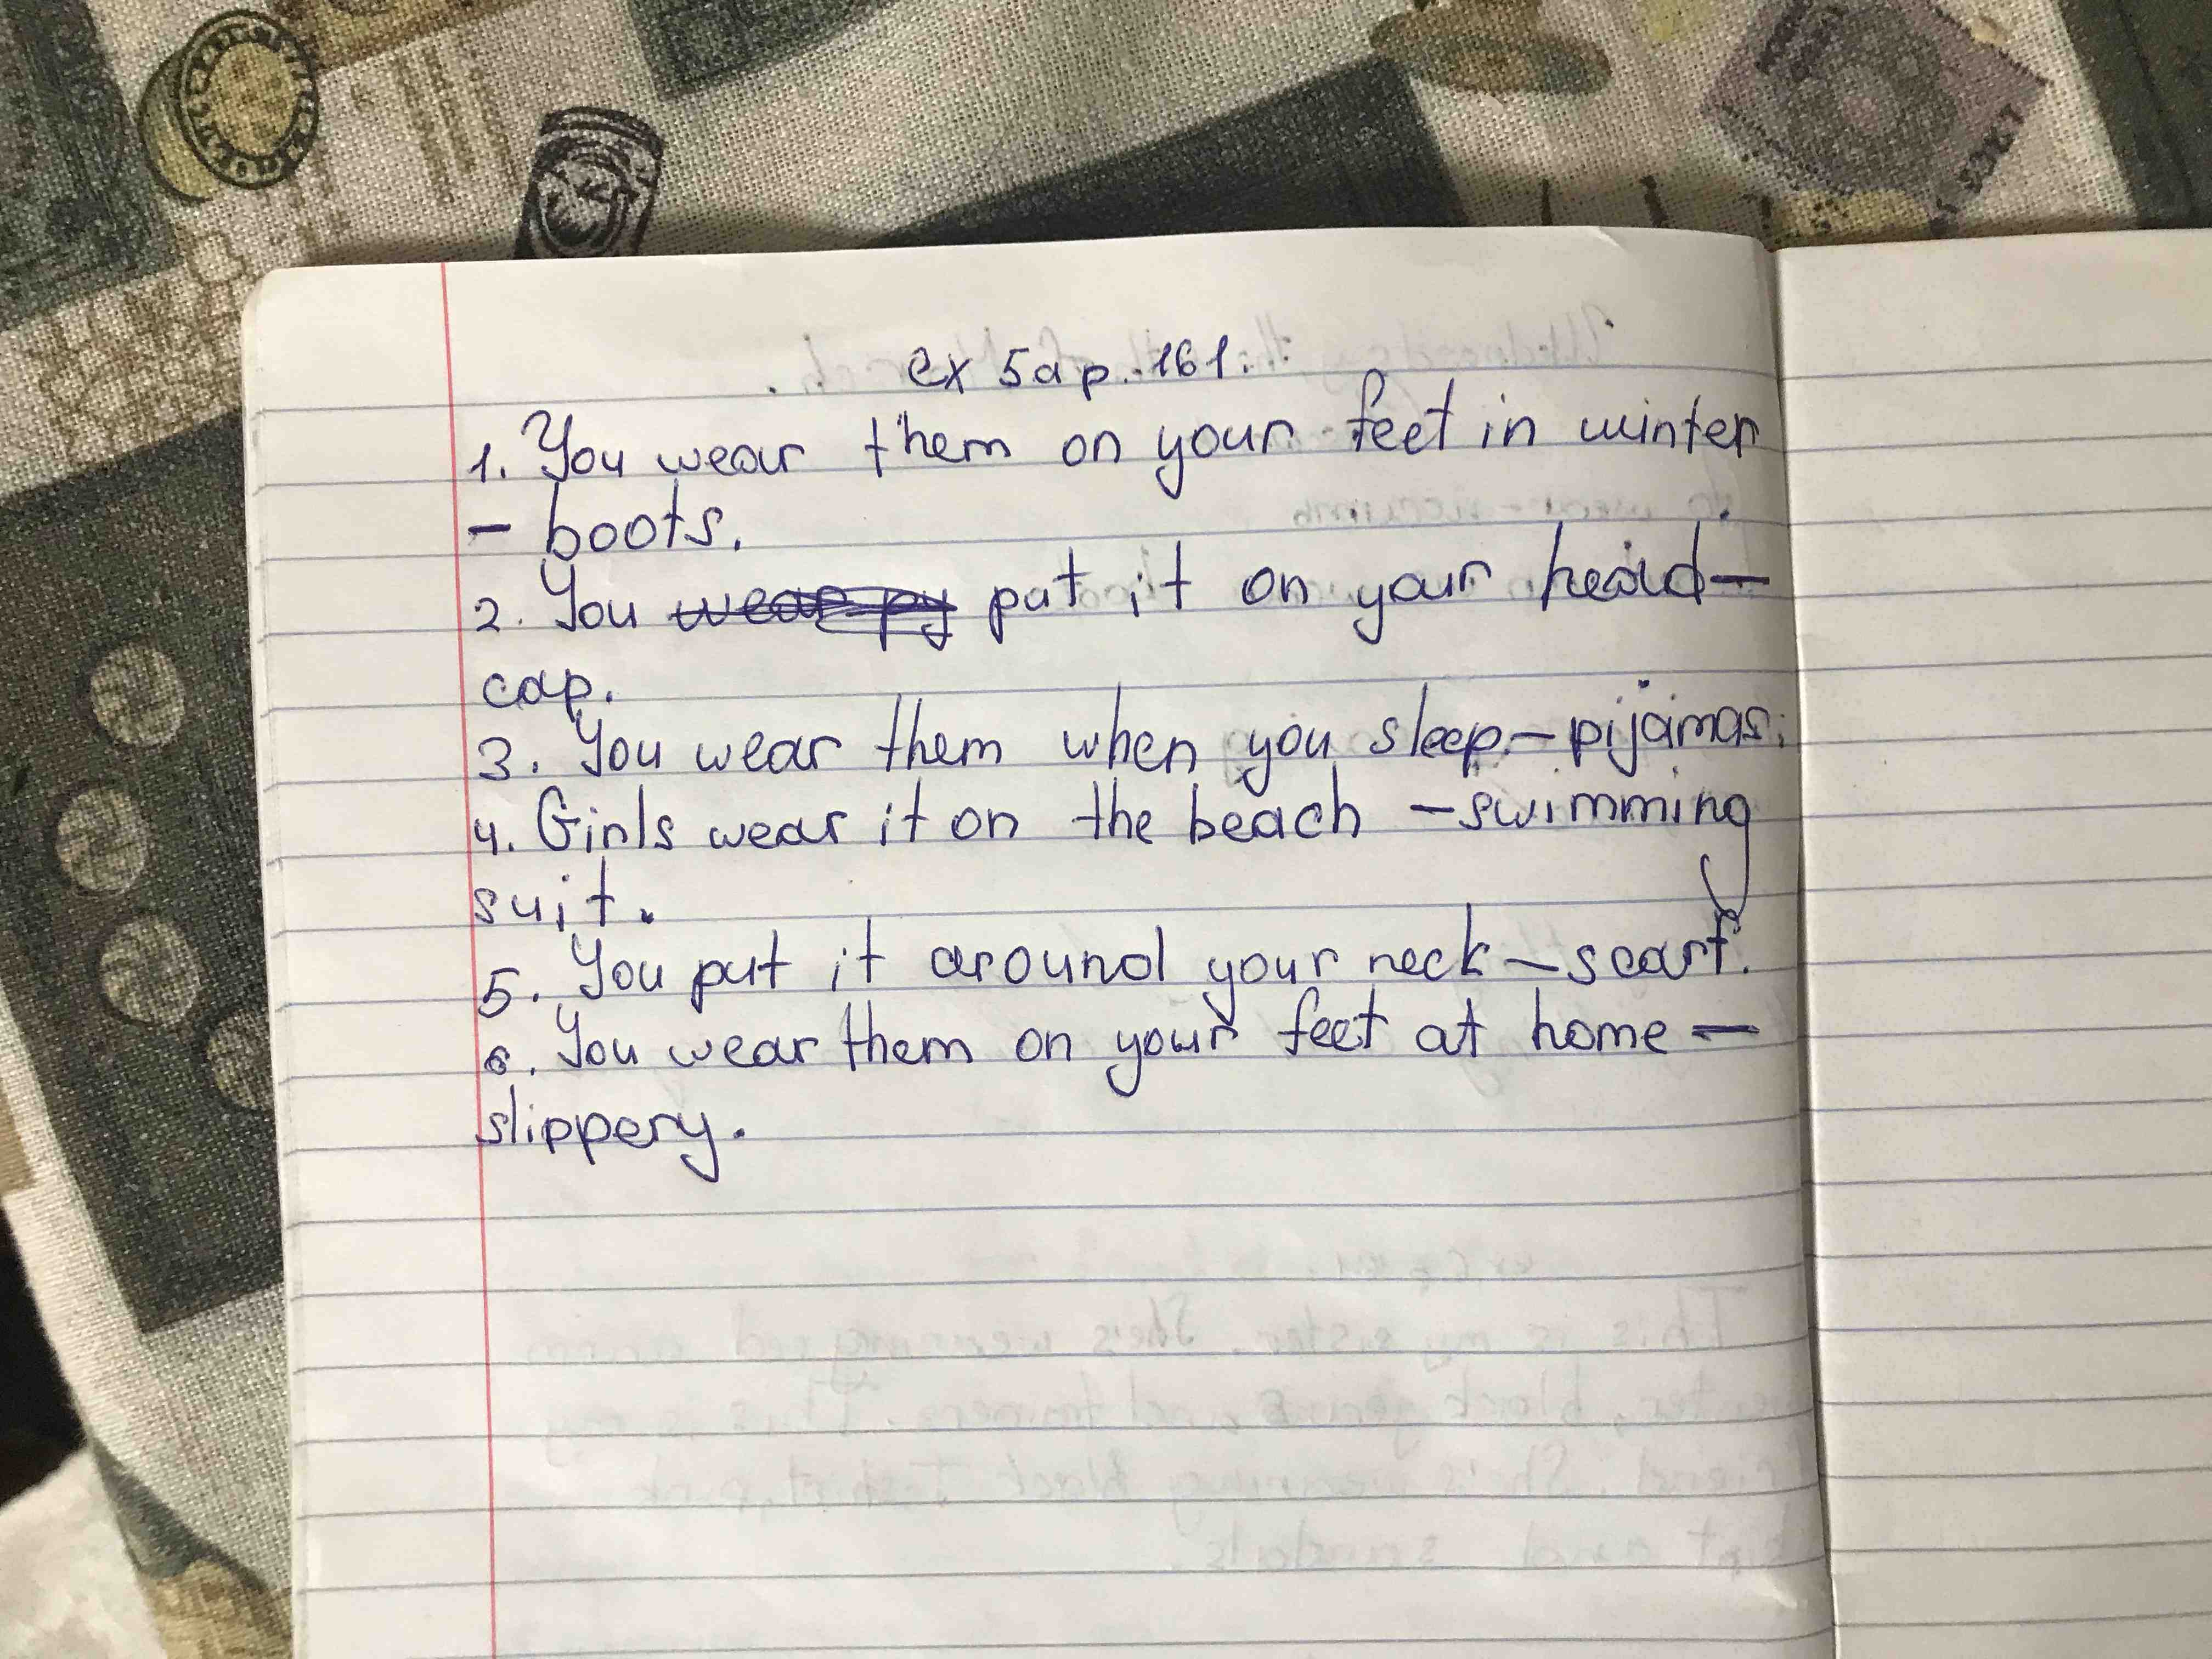 ex 5a p. 161.
1. You wear them on your feet in winter
- boots.
2. You wear py put it on your head -
cap.
3. You wear them when you sleep - pijamas.
4. Girls wear it on the beach - swimming
suit.
5. You put it around your neck - scarf.
6. You wear them on your feet at home -
slippery.